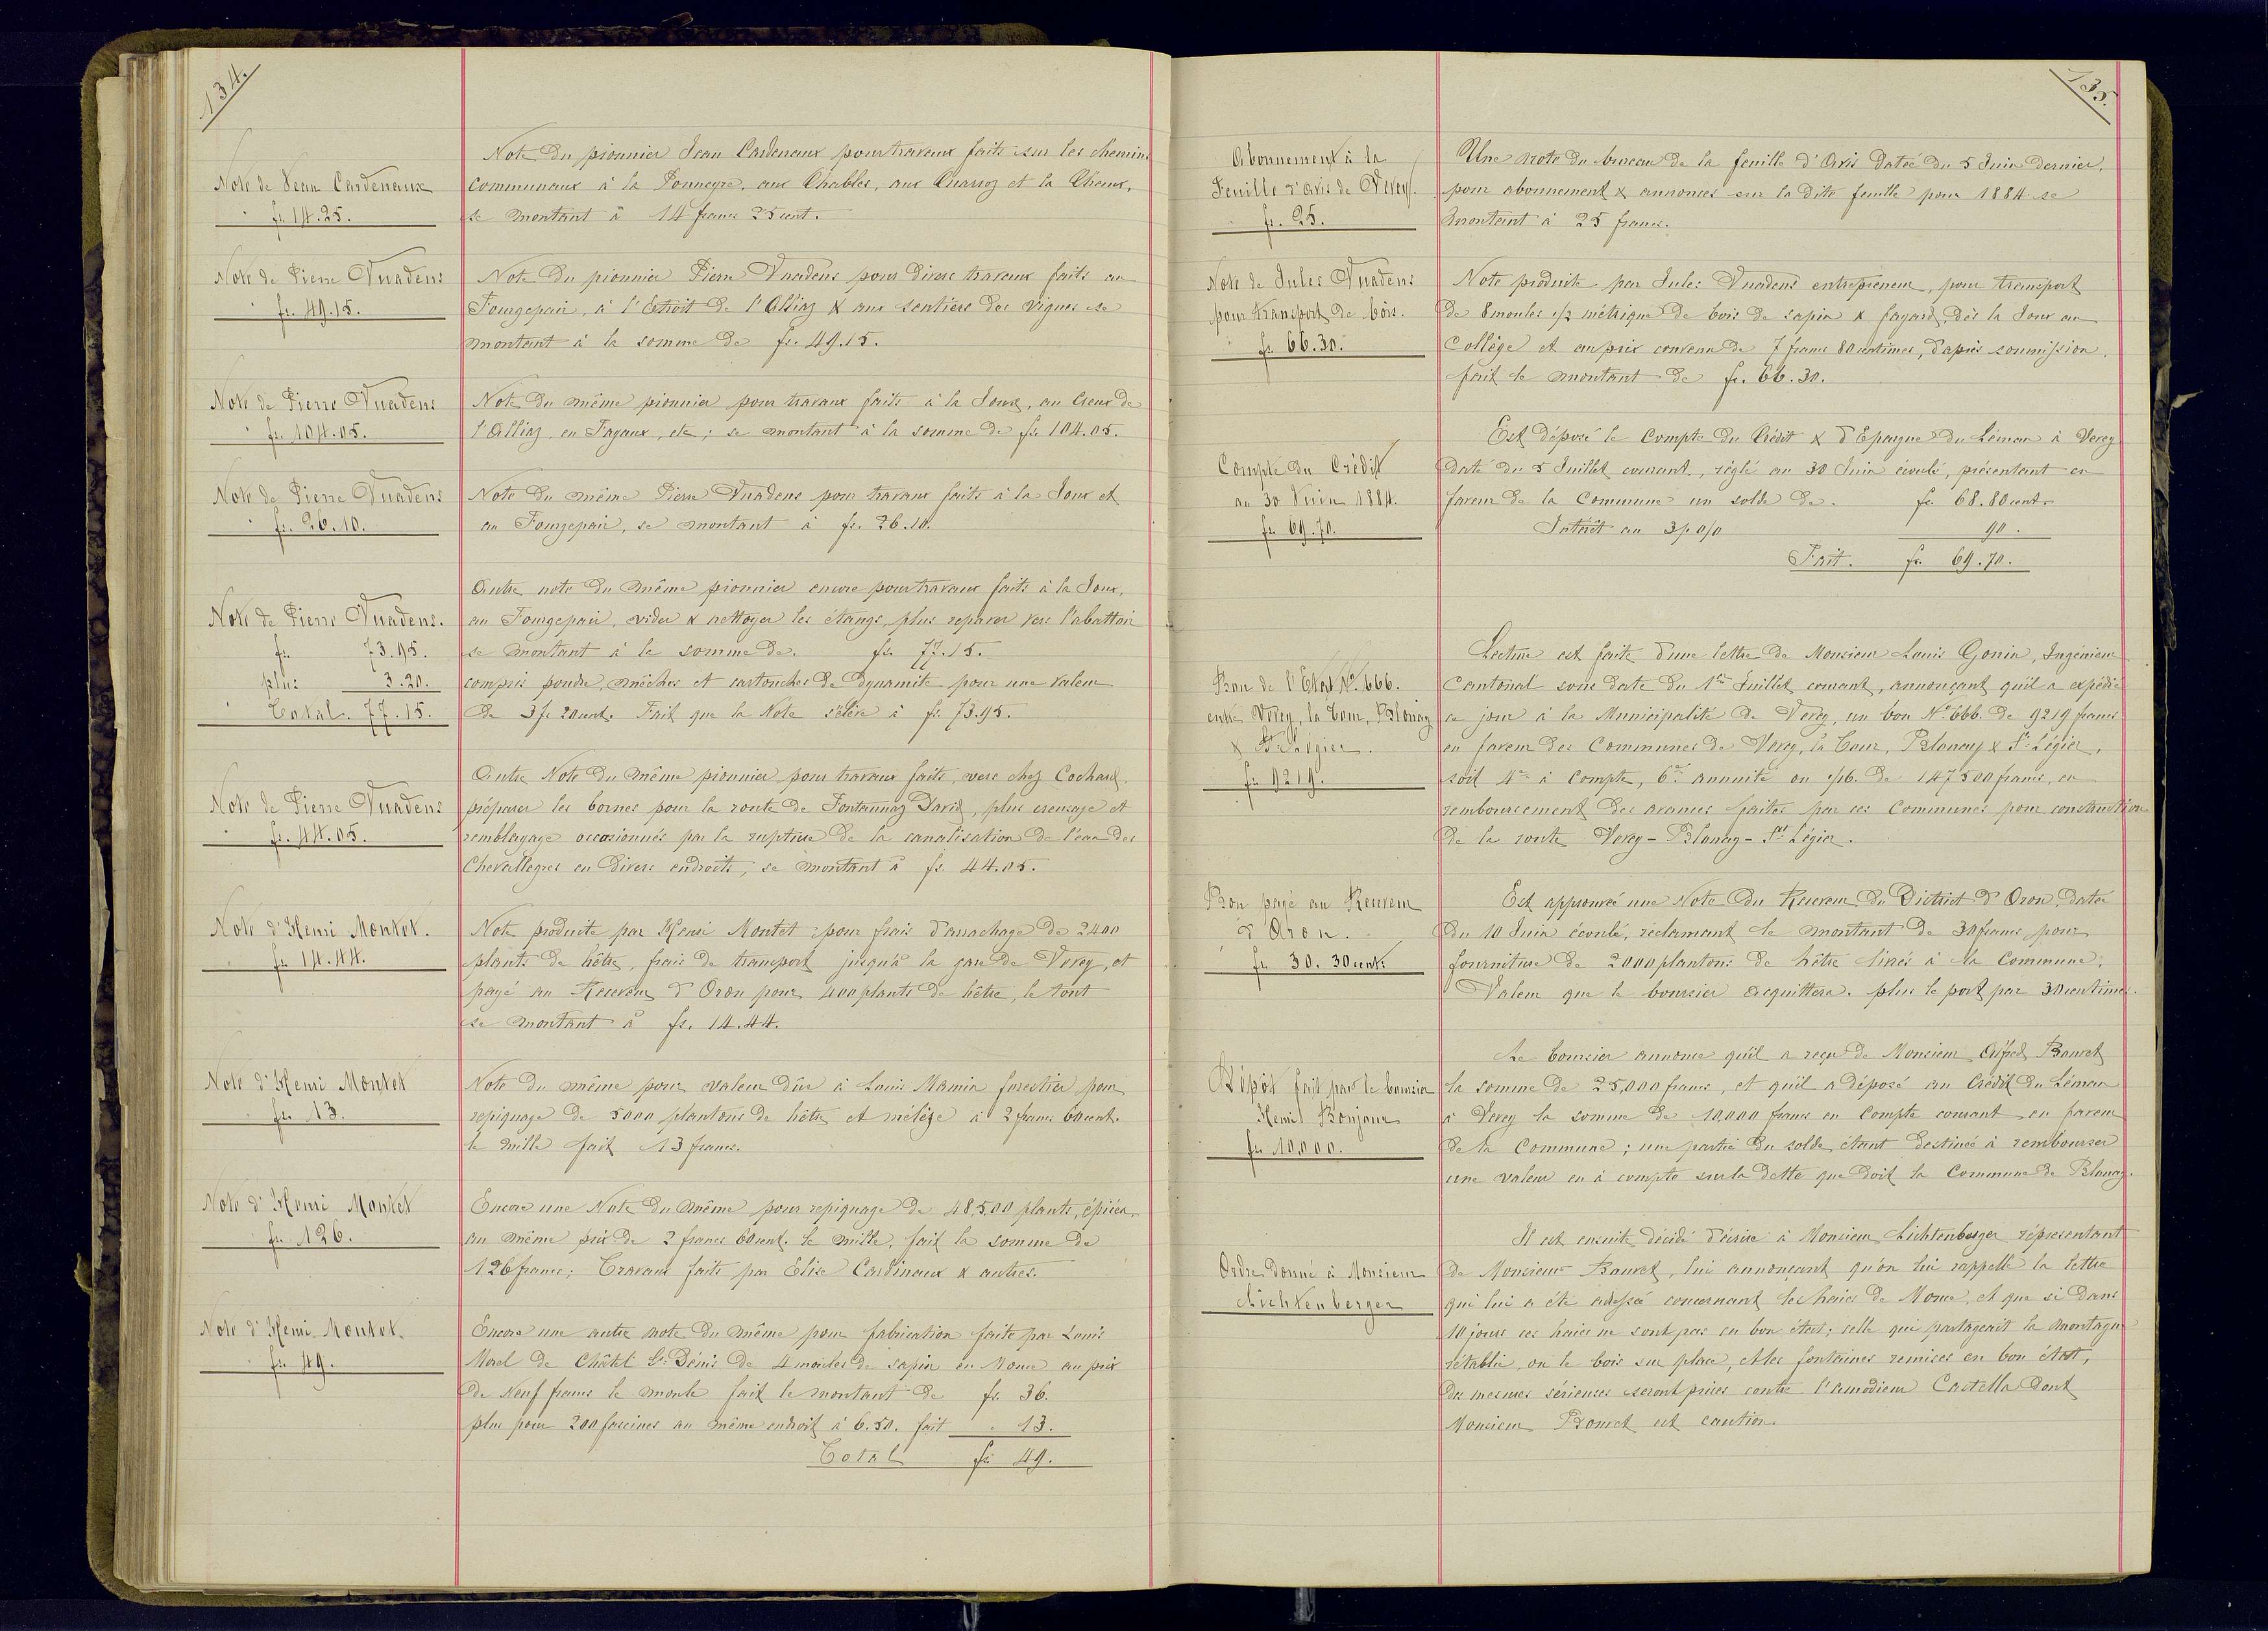 134.
Note de Jean Cardenaux
fr. 14.25.
Note du pionnier Jean Cardenaux pour travaux faits sur les chemins
communaux à la Ponneyre, aux Chables, aux Quarroz et la Chaux,
se montant à 14 francs 25 cent.
Note de Pierre Vuadens
" fr. 49.15.
Note du pionnier Pierre Vuadens pour divers travaux faits au
Fourgepair, à l'Etroit de l'Alliaz & aux sentiers des vignes se
montant à la somme de fr. 49.15.
Note de Pierre Vuadens
" fr. 104.05.
Note du même pionnier pour travaux faits à la Joux, au Creux de
l'Alliaz, en Fayaux, etc; se montant à la somme de fr. 104.05.
Note de Pierre Vuadens
" fr. 26.10.
Note du même Pierre Vuadens pour travaux faits à la Joux et
au Fourgepair, se montant à fr. 26.10.
Note de Pierre Vuadens.
fr. 73.95.
plus 3.20.
" Total. 77.15.
Autre note du même pionnier encore pour travaux faits à la Joux,
au Fourgepair, vider & nettoyer les étangs, plus reparer vers l'abattoir
se montant à la somme de. fr. 77.15.
compris poudre, mêches et cartouches de dynamite pour une valeur
de 3 fr. 20 cent. Fait que la Note s'élève à fr. 73.95.
Note de Pierre Vuadens
" fr. 44.05.
Autre Note du même pionnier pour travaux faits, vers chez Cochard,
préparer les bornes pour la route de Fontannaz David, plus creusage et
remblayage occasionnés par la rupture de la canalisation de l'eau des
Chevalleyres en divers endroits; se montant à fr. 44.05.
Note d'Henri Montet.
" fr. 14.44.
Note produite par Henri Montet pour frais d'arrachage de 2400
plants de hêtre, frais de transport jusqu'à la gare de Vevey, et
payé au Receveur d'Oron pour 400 plants de hêtre, le tout
se montant à fr. 14.44.
Note d'Henri Montet
" fr. 13.
Note du même pour valeur dûe à Louis Mamin forestier pour
repiquage de 5000 plantons de hêtre et mélèze à 2 francs 60 cent.
le mille fait 13 francs.
Note d'Henri Montet
fr. 126.
Encore une Note du même pour repiquage de 48,500 plants, épicéa
au même prix de 2 francs 60 cent. le mille, fait la somme de
126 francs; Travaux faits par Elise Cardinaux & autres.
Note d'Henri Montet.
" fr. 49.
Encore une autre note du même pour fabrication faite par Louis
Morel de Châtel St Dénis de 4 moules de sapin en Mouce au prix
de Neuf francs le moule fait le montant de fr. 36.
plus pour 200 fascines au même endroit à 6.50. fait " 13.
Total fr. 49.
135.
Abonnement à la
Feuille d'avis de Vevey.
" fr. 25.
Une note du bureau de la feuille d'Avis datée du 5 Juin dernier,
pour abonnement & annonces sur la dite feuille pour 1884 se
montant à 25 francs.
Note de Jules Vuadens
pour transport de bois.
" fr. 66.30.
Note produite par Jules Vuadens entrepreneur, pour transport
de 8 moules 1/2 métrique de bois de sapin & fayard, dès la Joux au
Collège et au prix convenu de 7 francs 80 centimes, d'après soumission,
fait le montant de fr. 66.30.
Compte du Crédit
au 30 Juin 1884.
fr. 69.70.
Est déposé le Compte du Crédit & d'Epargne du Léman à Vevey
daté du 5 Juillet courant, réglé au 30 Juin écoulé, présentant en
faveur de la Commune un solde de. fr. 68.80 cent.
Intérêt au 3 p. 0/0 90.
Fait. fr. 69.70.
Bon de l'Etat No. 666.
entre Vevey, la Tour, Blonay
& St Légier.
fr. 9219.
Lecture est faite d'une lettre de Monsieur Louis Gonin, Ingénieur
Cantonal sous date du 1er Juillet courant, annonçant qu'il a expédié
ce jour à la Municipalité de Vevey, un bon No. 666. de 9219 francs
en faveur des Communes de Vevey, la Tour, Blonay & St Légier,
soit 4e à Compte, 6e annuité ou 1/16. de 147500 francs, en
remboursement des avances faites par ces Communes pour construction
de la route Vevey - Blonay - St Légier.
Bon payé au Receveur
d'Oron.
fr. 30. 30 cent.
Est approuvée une Note du Receveur du District d'Oron, datée
du 10 Juin écoulé, réclamant le montant de 30 francs pour
fourniture de 2000 plantons de hêtre livrés à la Commune,
Valeur que le boursier acquittera. plus le port par 30 centimes.
Dépôt fait par le boursier
Henri Bonjour
fr. 10,000.
Le boursier annonce qu'il a reçu de Monsieur Alfred Bauret
la somme de 25,000 francs, et qu'il a déposé au Crédit du Léman
à Vevey la somme de 10,000 francs en Compte courant en faveur
de la Commune; une partie du solde étant destinée à rembourser
une valeur en à compte sur la dette que doit la Commune de Blonay.
Ordre donné à Monsieur
Lichtenberger
Il est ensuite décidé d'écrire à Monsieur Lichtenberger réprésentant
de Monsieur Bauret, lui annonçant qu'on lui rappelle la lettre
qui lui a été adressée concernant les haies de Mouce, et que si dans
10 jours ces haies ne sont pas en bon état; celle qui partageait la montagne
rétablie, ou le bois sur place, et les fontaines remises en bon état,
des mesures sérieuses seront prises contre l'amodieur Castella dont
Monsieur Bouret est caution.